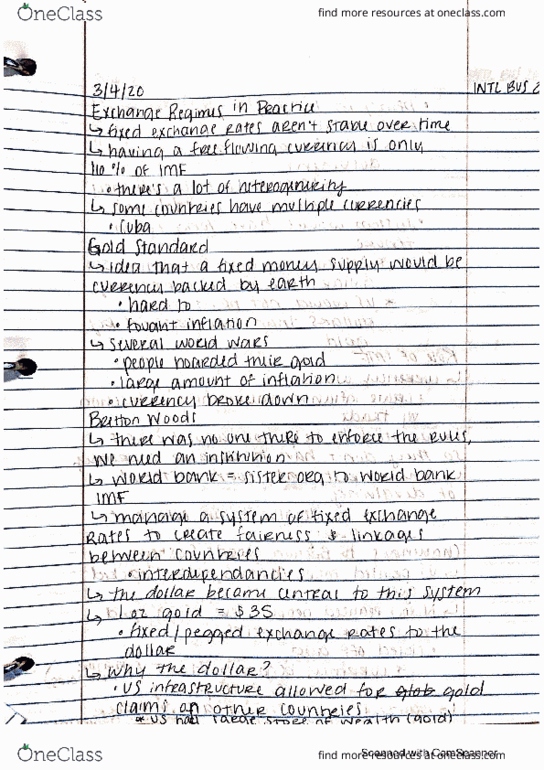 OneClass
find more resources at oneclass.com
3/4/20
INTL BUS 2
Exchange Regimes in Practice
↳ fixed exchange rates aren't stable over time
↳ having a free flowing currency is only
40% of IMF
• there's a lot of heterogeneity
↳ some countries have multiple currencies
• Cuba
Gold Standard
↳ idea that a fixed money supply would be
currency backed by earth
• hard to
• fought inflation
↳ several world wars
• people hoarded their gold
• large amount of inflation
• currency broke down
Bretton Woods
↳ there was no one there to enforce the rules,
we need an institution
↳ World bank = sister org to world bank
IMF
↳ manage a system of fixed exchange
Rates to create fairness & linkages
between countries
• interdependancies
↳ the dollar became central to this system
↳ 1 oz gold = $35
• fixed/pegged exchange rates to the
dollar
↳ why the dollar?
• US infrastructure allowed for glob gold
claims on other countries
• US had large store of wealth (gold)
OneClass
find more resources at oneclass.com
Scanned with CamScanner